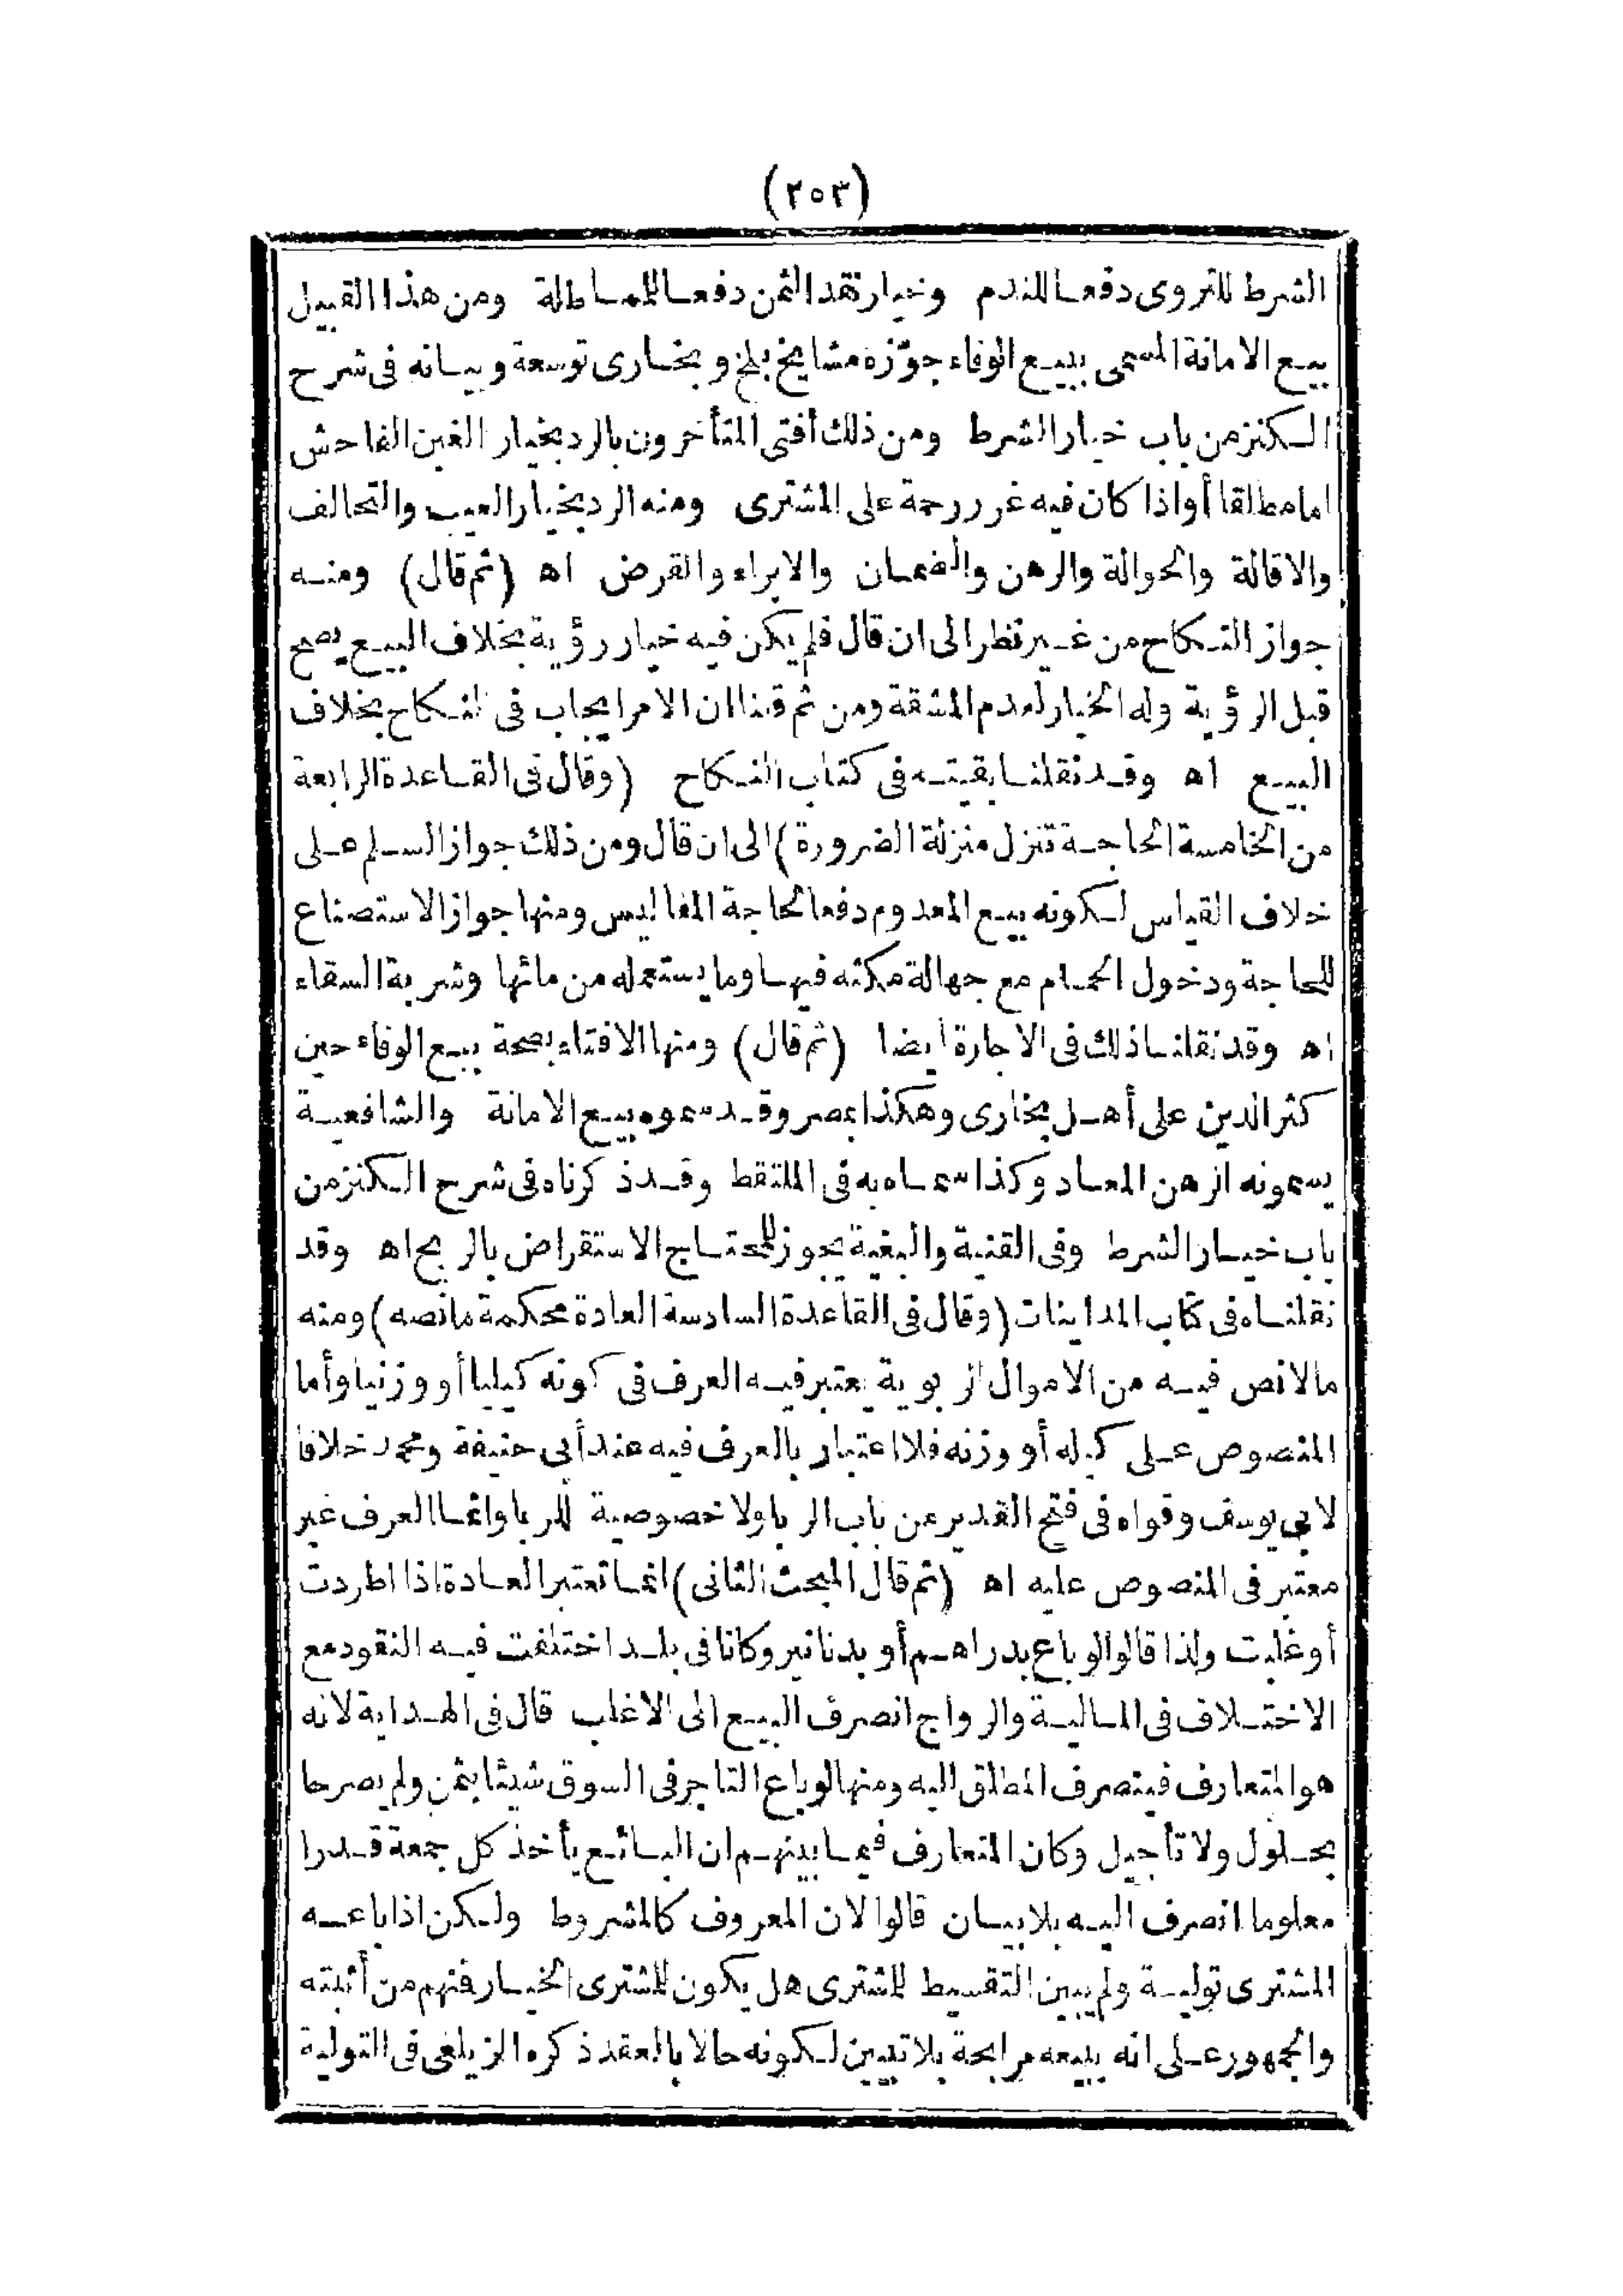 (٢٥٣)
الشرط للتروى دفعا للندم وخيار نقد الثمن دفعا للمماطلة ومن هذا القبيل
بيع الامانة المسمى ببيع الوفاء جوّزه مشايخ بلخ وبخارى توسعة وبيانه فى شرح
الكنز من باب خيار الشرط ومن ذلك أفتى المتأخرون بالرد بخيار الغبن الفاحش
امامطلقا أواذا كان فيه غرر رحمة على المشترى ومنه الرد بخيار العيب والتحالف
والاقالة والحوالة والرهن والضمان والابراء والقرض اه (ثم قال) ومنه
جواز النكاح من غير نظر الى ان قال فلم يكن فيه خيار رؤية بخلاف البيع يصح
قبل الرؤية وله الخيار لعدم المشقة ومن ثم قلنا ان الامر ايجاب فى النكاح بخلاف
البيع اه وقد نقلنا بقيته فى كتاب النكاح (وقال فى القاعدة الرابعة
من الخامسة الحاجة تنزل منزلة الضرورة) الى ان قال ومن ذلك جواز السلم على
خلاف القياس لكونه بيع المعدوم دفعا لحاجة المفاليس ومنها جواز الاستصناع
للحاجة ودخول الحمام مع جهالة مكثه فيها وما يستعمله من مائها وشربة السقاء
اه وقد نقلنا ذلك فى الاجارة أيضا (ثم قال) ومنها الافتاء بصحة بيع الوفاء حين
كثر الدين على أهل بخارى وهكذا بمصر وقد سموه بيع الامانة والشافعية
يسمونه الرهن المعاد وكذا سماه به فى الملتقط وقد ذكرناه فى شرح الكنز من
باب خيار الشرط وفى القنية والبغية يجوز للمحتاج الاستقراض بالربح اه وقد
نقلناه فى كتاب المداينات (وقال فى القاعدة السادسة العادة محكمة مانصه) ومنه
مالانص فيه من الاموال الربوية يعتبر فيه العرف فى كونه كيليا أو وزنيا وأما
المنصوص على كيله أو وزنه فلا اعتبار بالعرف فيه عند أبى حنيفة ومحمد خلافا
لابى يوسف وقواه فى فتح القدير من باب الربا ولا خصوصية للربا وانما العرف غير
معتبر فى المنصوص عليه اه (ثم قال المبحث الثانى) انما تعتبر العادة اذا اطردت
أو غلبت ولذا قالوا لو باع بدراهم أو بدنانير وكانا فى بلد اختلفت فيه النقود مع
الاختلاف فى المالية والرواج انصرف البيع الى الاغلب قال فى الهداية لانه
هو المتعارف فينصرف المطلق اليه ومنها لو باع التاجر فى السوق شيئا بثمن ولم يصرحا
بحلول ولا تأجيل وكان المتعارف فيما بينهم ان البائع يأخذ كل جمعة قدرا
معلوما انصرف اليه بلا بيان قالوا لان المعروف كالمشروط ولكن اذا باعه
المشترى تولية ولم يبين التقسيط للمشترى هل يكون للمشترى الخيار فمنهم من أثبته
والجمهور على انه يبيعه مرابحة بلا تبيين لكونه حالا بالعقد ذكره الزيلعى فى التولية